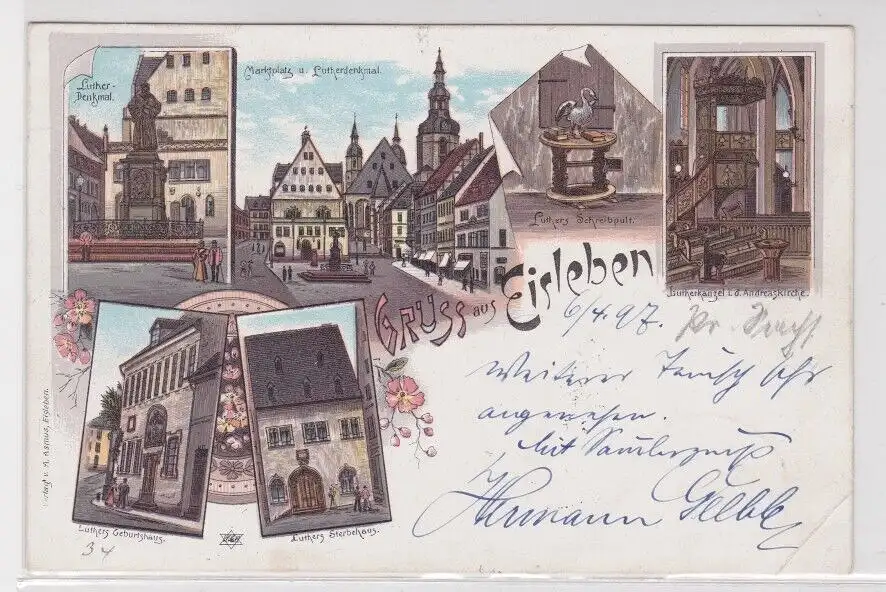 Luther-
Denkmal.
Marktplatz u. Lutherdenkmal.
Luthers Schreibpult.
Lutherkanzel i. d. Andreaskirche.
Gruss aus Eisleben
6/4.97.
Weiterer Tausch sehr
angenehm.
Mit Sammlergruß
Hermann
Verlag v. A. Asmus, Eisleben.
Luthers Geburtshaus.
Luthers Sterbehaus.
34